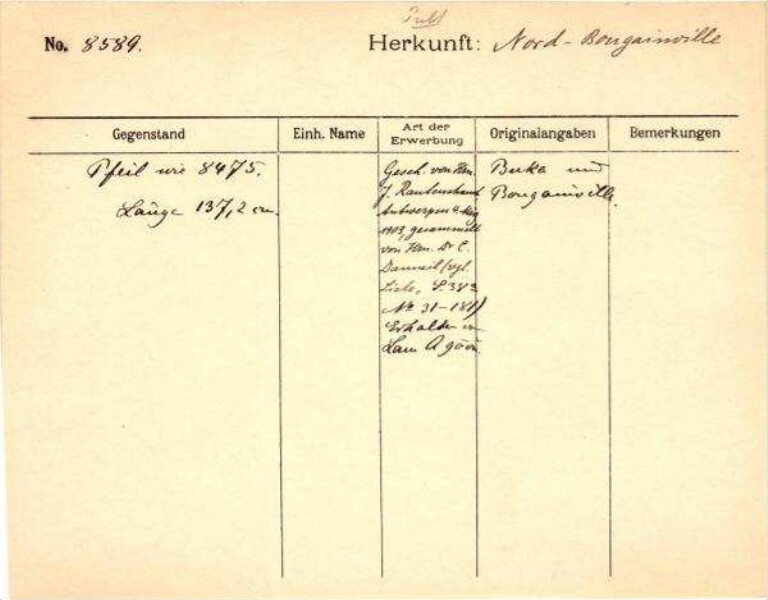 No. 8589.
Herkunft: Nord-Bougainville
Gegenstand
Einh. Name
Art der Erwerbung
Originalangaben
Bemerkungen
Pfeil wie 8475.
Länge 137,2 cm.
Gesch. von Hrn.
J. Rautenstrauch
Antwerpen
1903, gesammelt
von Hrn. Dr C.
Danneil (vgl.
Liste, S. 383
No 31-181)
Erhalten
Buka und
Bougainville.